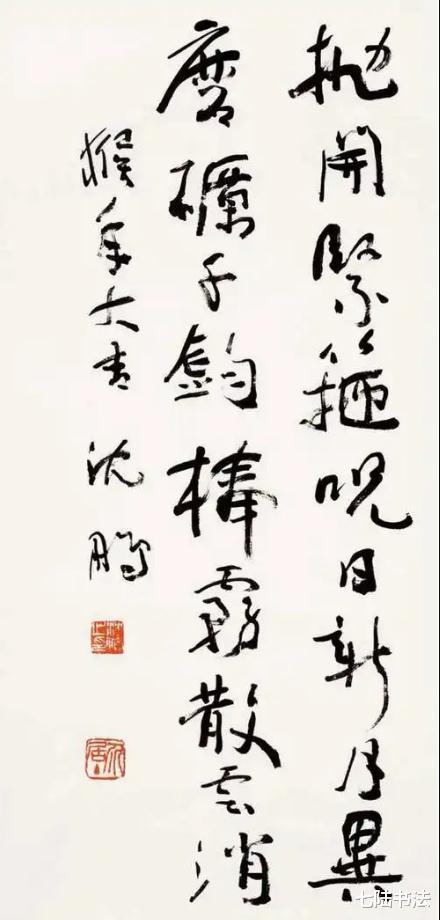 抛開緊箍呪日新月異
磨礪千鈞棒霧散雲消
猴年大吉 沈鵬
七陆书法